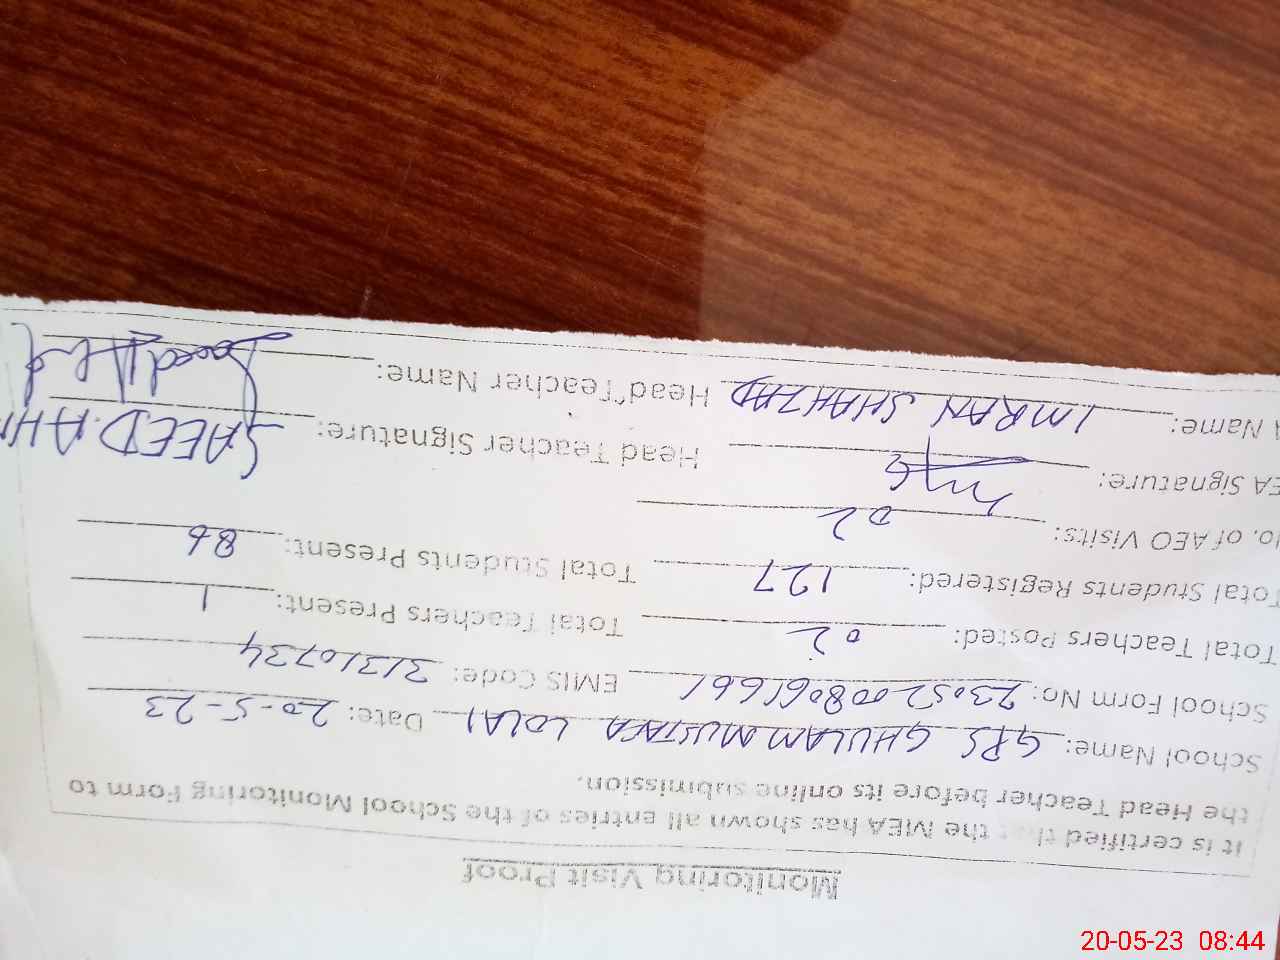 Monitoring Visit Proof
it is certified that the MEA has shown all entries of the School Monitoring Form to
the Head Teacher before its online submission.
School Name: GPS GHULAM MUSTAFA LOLAI Date: 20-5-23
School Form No: 23052008061661 EMIS Code: 31310734
Total Teachers Posted: 02 Total Teachers Present: 1
Total Students Registered: 127 Total Students Present: 86
No. of AEO Visits: 02
EA Signature: Head Teacher Signature: SAEED AH
A Name: IMRAN SHAHZAD Head Teacher Name:
20-05-23 08:44